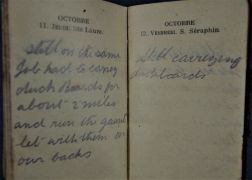 OCTOBRE
11. JEUDI. Ste Laure.
still on the same
Job had to carry
duck Boards for
about 2 miles
and run the gaunt
let with them on
our backs
OCTOBRE
12. VENDREDI. S. Séraphin.
Still carrying
duckboards